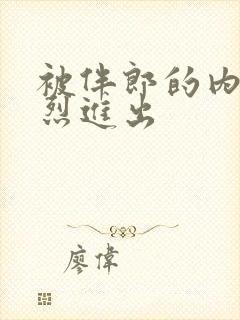 被伴郎的内
烈进出
廖偉